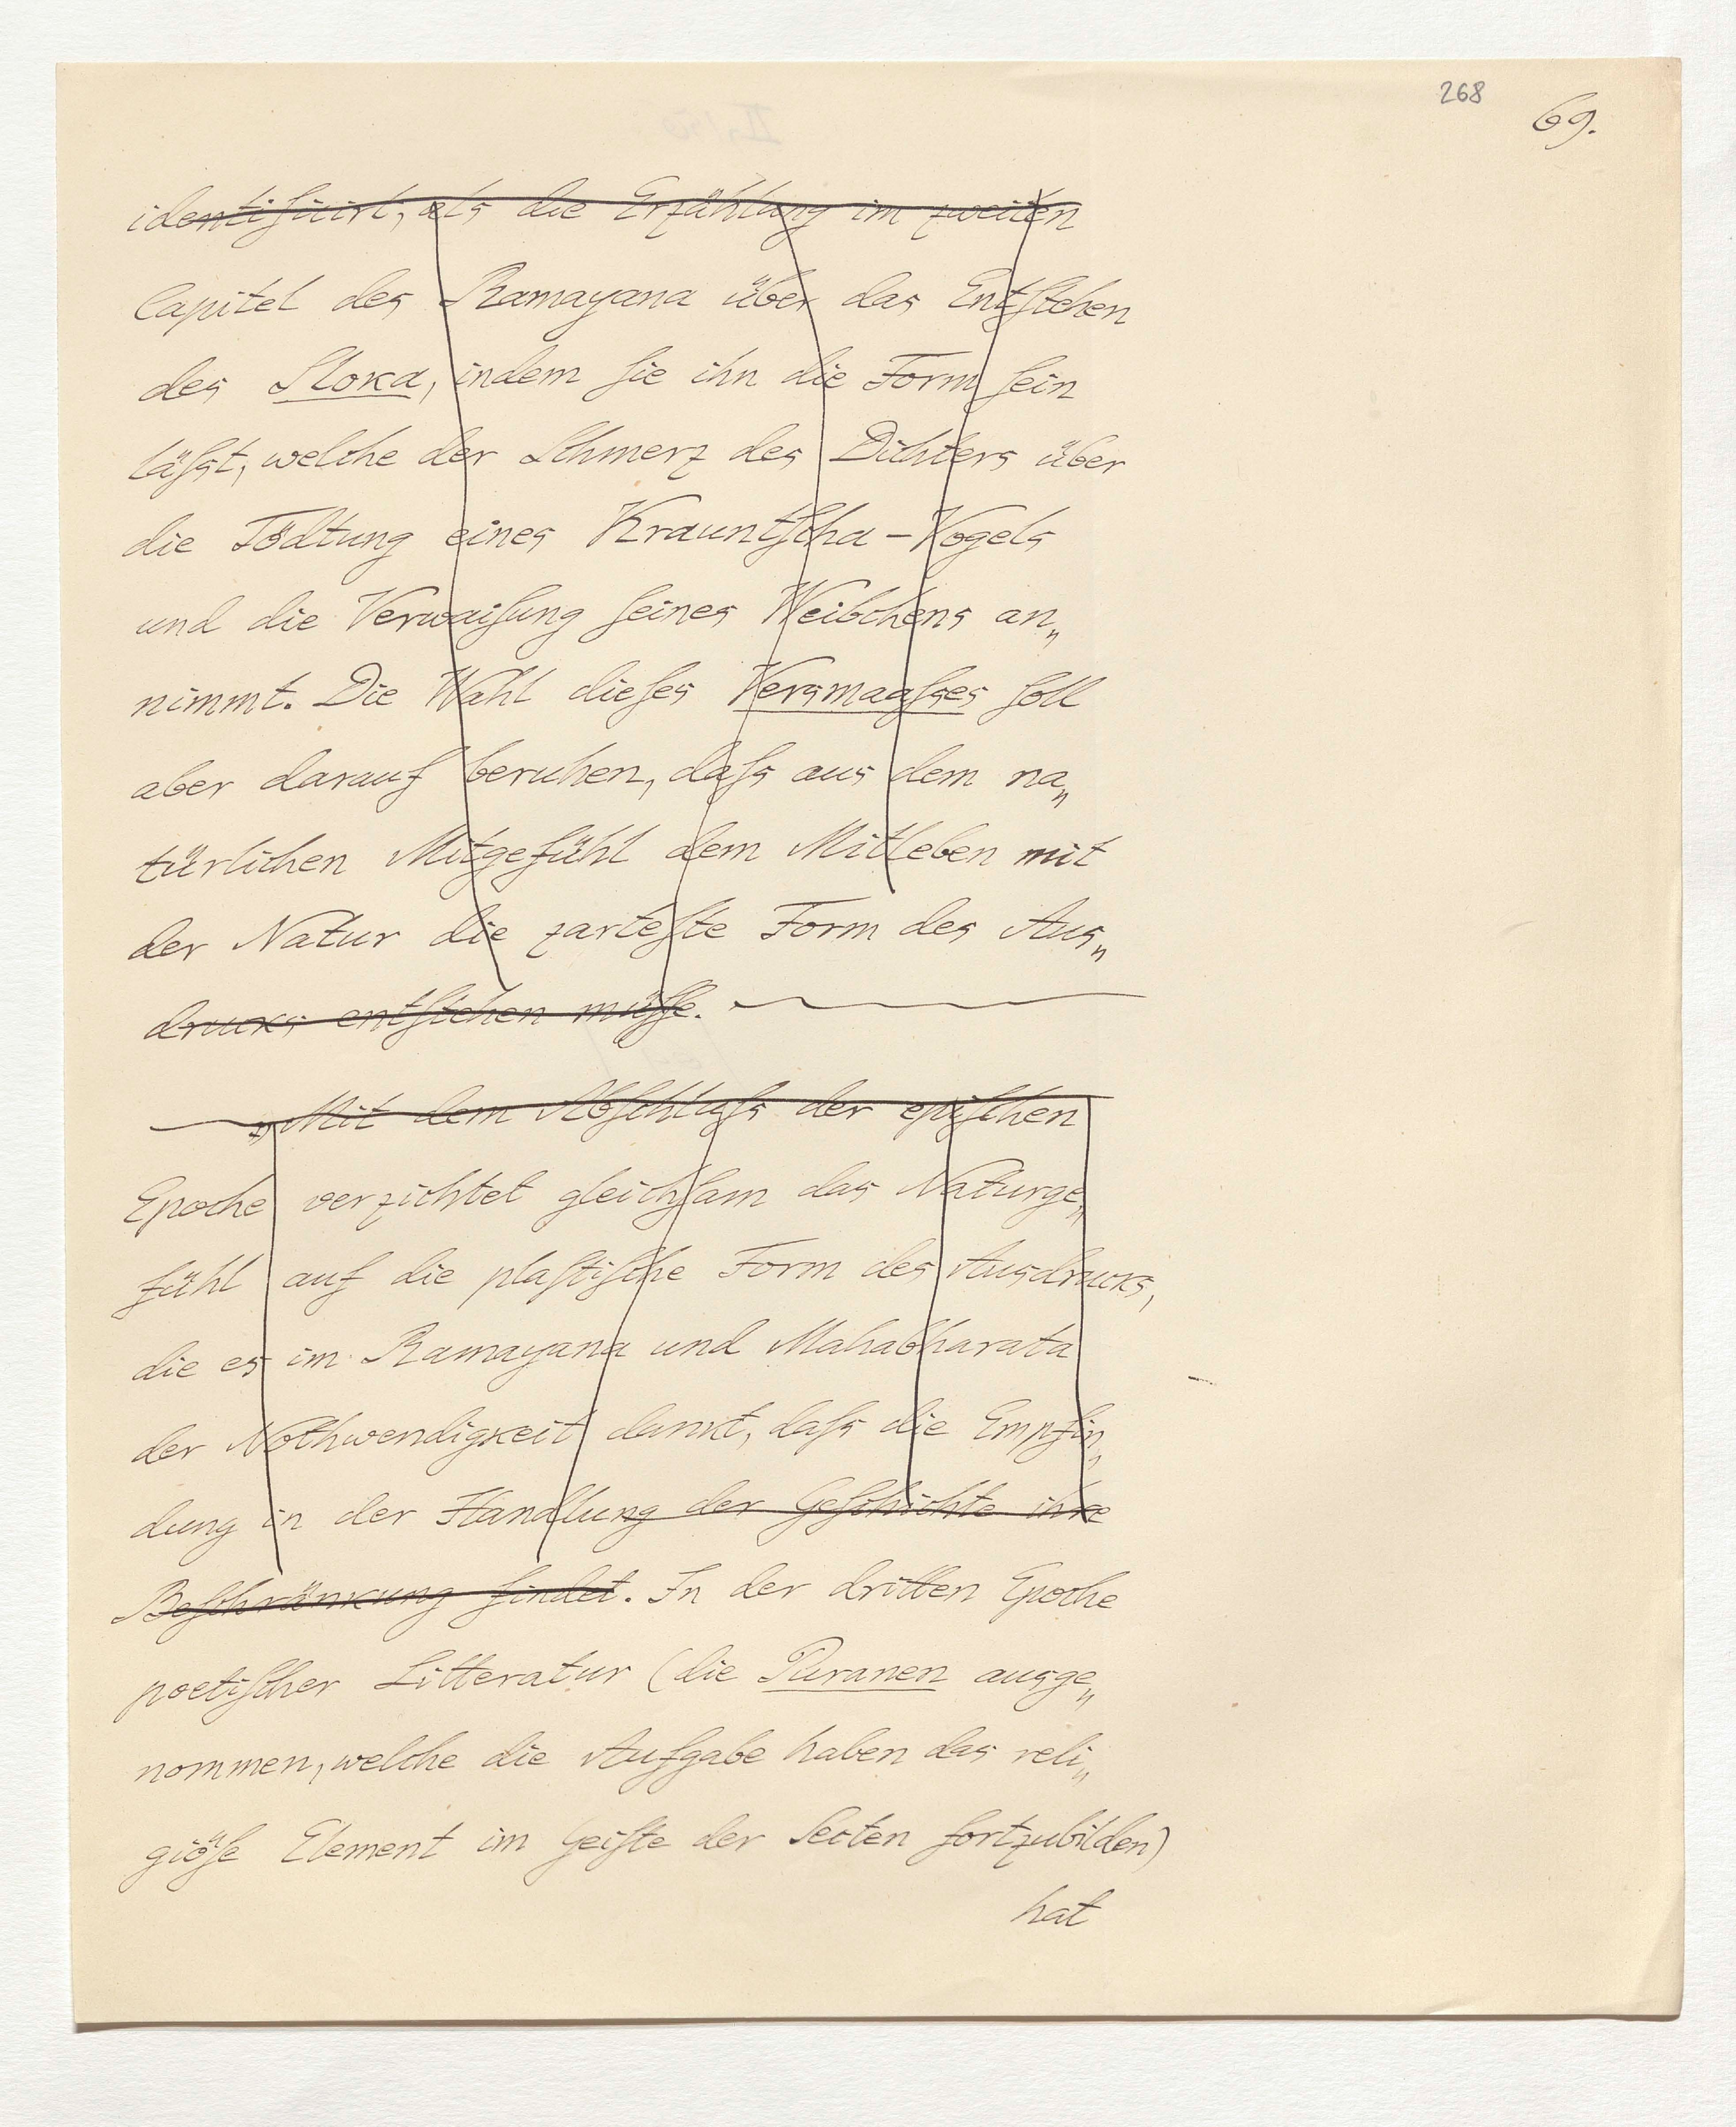 268
69.
identificirt, als die Erzählung im zweiten
Capitel des Ramayana über das Entstehen
des Sloka, indem sie ihn die Form sein
läßst, welche der Schmerz des Dichters über
die Tödtung eines Krauntscha-Vogels
und die Verwaisung seines Weibchens an„
nimmt. Die Wahl dieses Versmaaßses soll
aber darauf beruhen, daß aus dem na„
türlichen Mitgefühl dem Mitleben mit
der Natur die zarteste Form des Aus„
drucks entstehen müsse.
„Mit dem Abschluß der epischen
Epoche verzichtet gleichsam das Naturge„
fühl auf die plastische Form des Ausdrucks,
die es im Ramayana und Mahabharata
der Nothwendigkeit dankt, daß die Empfin„
dung in der Handlung der Geschichte ihre
Beschränkung findet. In der dritten Epoche
poetischer Litteratur (die Puranen ausge„
nommen, welche die Aufgabe haben das reli„
giöse Element im Geiste der Secten fortzubilden)
hat